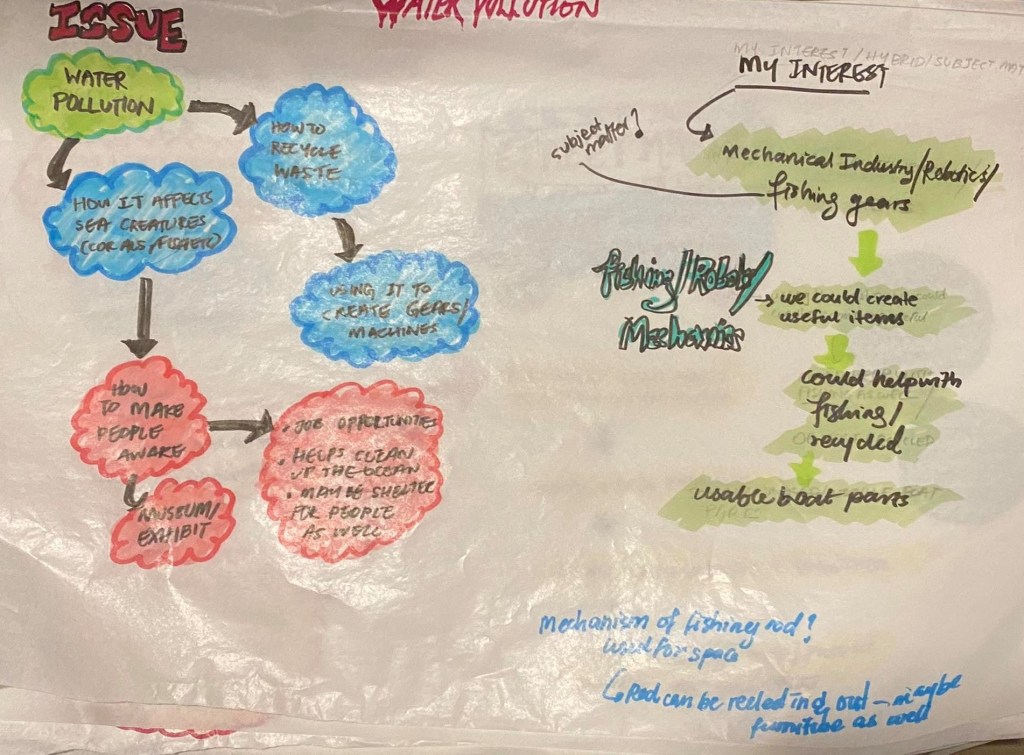 WATER POLLUTION
ISSUE
WATER
POLLUTION
HOW TO
RECYCLE
WASTE
HOW IT AFFECTS
SEA CREATURES
(CORALS/FISH ETC)
USING IT TO
CREATE GEARS/
MACHINES
HOW
TO MAKE
PEOPLE
AWARE
• JOB OPPORTUNITIES
• HELPS CLEAN
UP THE OCEAN
• MAY BE SHELTER
FOR PEOPLE
AS WELL
MUSEUM/
EXHIBIT
MY INTEREST/HYBRID/SUBJECT MAT
MY INTEREST
subject
matter?
Mechanical Industry/Robotics/
fishing gears
fishing/Robots/
Mechanics
→ we could create
useful items
could help with
fishing/
recycled
usable boat parts
Mechanism of fishing rod?
used for space
↳ Rod can be reeled in & out – maybe
furniture as well